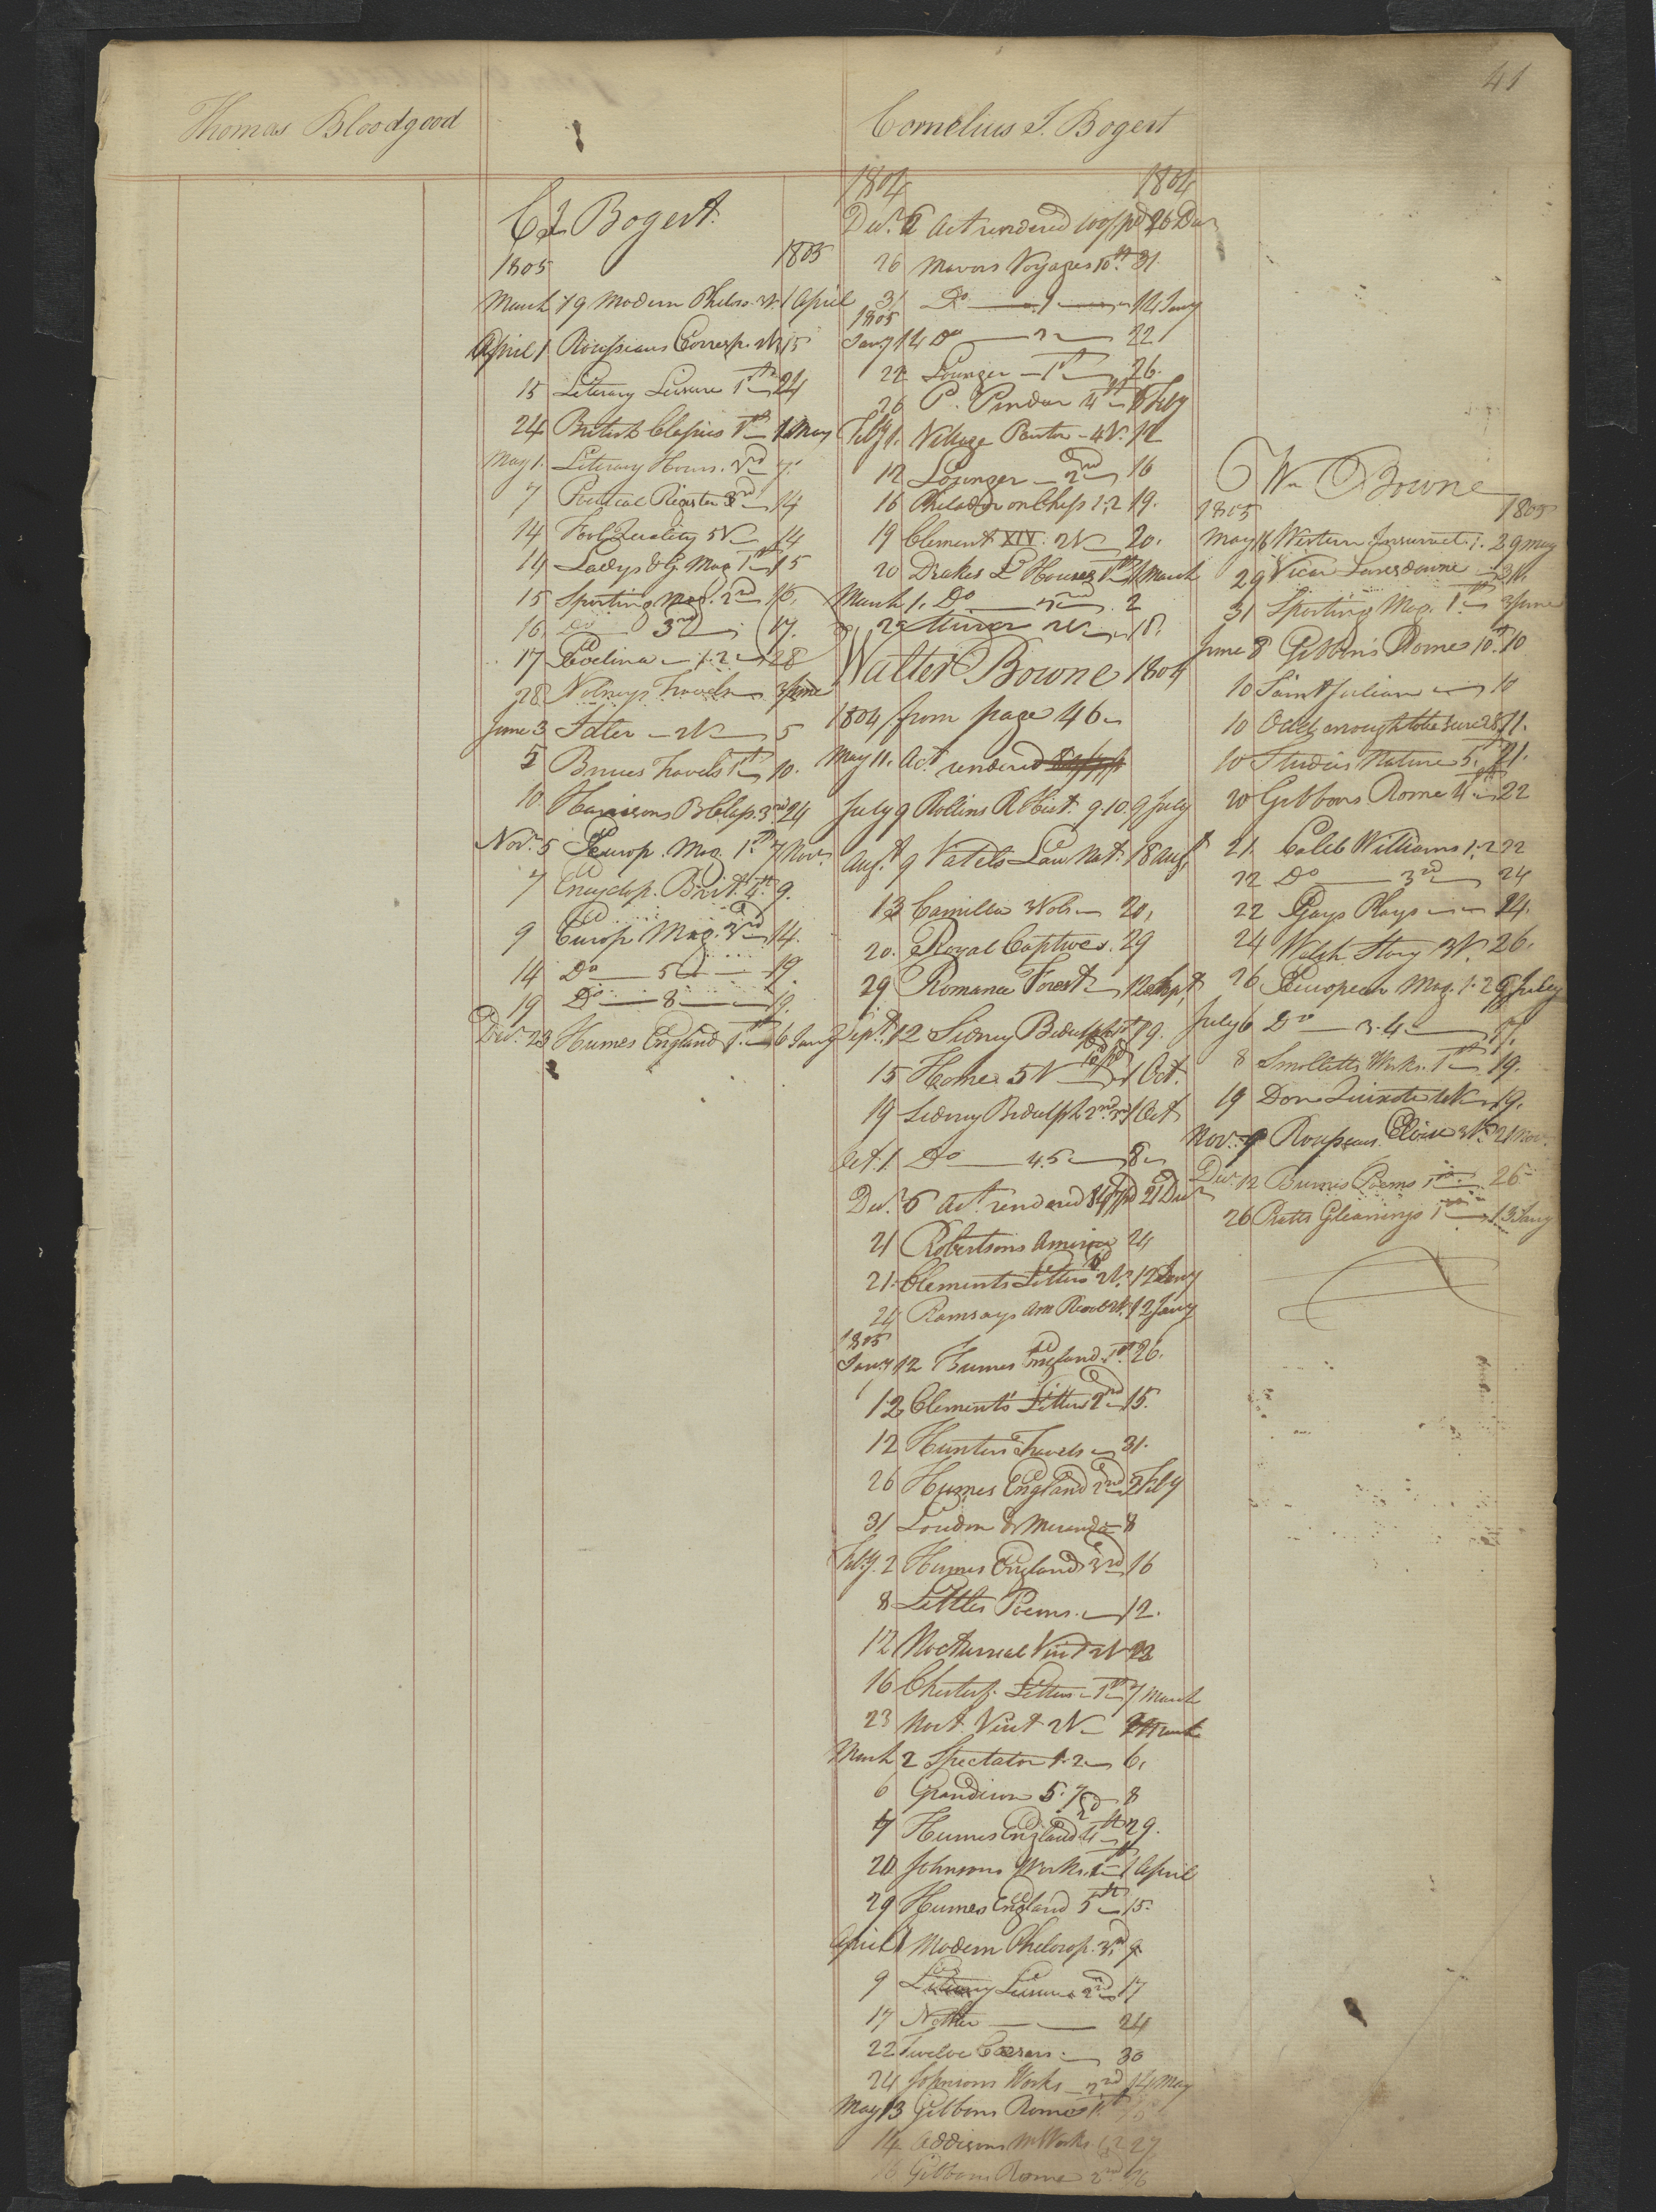 41
Thomas Bloodgood
Cornelius J. Bogert
C J Bogert.
1805 1805
March 19 Modern Philos. 2V. 1 April
April 1 Rousseaus Corresp. 2V 15
15 Literary Leisure 1st 24
24 British Classics 1st 1 May
May 1. Literary Hours. 2nd 7
7 Poetical Register 3rd 14
14 Fool Quality 5V 14
14 Ladys & G. Mag 1st 15
15 Sporting Mag. 2nd 16,
16 Do 3rd 17.
17 Evelina 1.2 28
28 Volneys Travels 3 June
June 3 Idler 2V 5
5 Bruces Travels 1st 10.
10 Harrisons B Class. 3rd 24
Novr. 5 Europ. Mag. 1st 7 Novr
7 Encyclop. Brit. 4th 9.
9 Europ Mag. 3rd 14.
14 Do 5 19
19 Do 8
Decr. 23 Humes England 1st 6 Jany
1804 1804
Decr. 6 Act rendered pd 26 Decr
26 Mavors Voyages 10th 31.
31 Do 1 14 Jany
1805
Jany 14 Do 2 22
22 Lounger 1st 26.
26 P. Pindar 4th 1 Feby
Feby 1. Village Pastor 4V. 12
12 Lounger 2nd 16
16 Philador on Chess 1.2 19.
19 Clement XIV. 2V 20.
20 Drakes L Hours 1st 1 March
March 1. Do 2nd 2
2V 18.
Walter Bowne 1804
1804 from page 46
May 11. Act. rendered
July 9 Rollins R Hist. 9.10. 9 July
Augt. 9 Vatels Law Nat. 18 Augt
13 Camilla 3 Vols 20,
20. Royal Captives. 29
29 Romance Forest 12 Sept
Sept. 12 Sidney Bidulph 1st 19.
15 Homer 5V 1 Oct.
19 Sidney Bidulph 2nd 3rd 1 Oct
Oct. 1 Do 4.5 8
Decr. 6 Act. rendered pd 21 Decr
21 Robertsons America 24
21. Clements Letters 2V. 12 Jany
24 Ramsays Am Revol 2V. 12 Jany
1805
Jany 12 Humes England 1st 26.
12 Clements Letters 2nd 15.
12 Hunters Travels 31.
26 Humes England 2nd 2 Feby
31 Loudon & Miranda 8
Feby. 2 Humes England 3rd 16
8 Littles Poems. 12.
12 Nocturnal Visit 2V 23
16 Chesterf. Letters 1st 7 March
23 Noct. Visit 2V 2 March
March 2 Spectator 1.2 6,
6 Grandison 5.7 8
7 Humes England 4th 29.
20 Johnsons Works 1st 1 April
29 Humes England 5th 15.
April 1 Modern Philosop. 3rd 9.
9 Literary Leisure 2nd 17
17 24
22 Twelve Caesars 30
24 Johnsons Works 2nd 14 May
May 13 Gibbons Rome 1st
14 Addisons M Works 1.2 27
16 Gibbons Rome 2nd 16
Wm Bowne
1805 1805
May 16 Western Insurrect. 1. 29 May
29 Vicar Lansdowne 31.
31 Sporting Mag. 1st 3 June
June 8 Gibbons Rome 10th 10
10 Saint Julian 10
10 Odd enough to be sure 2V 11.
10 Studies Nature 5. 21.
20 Gibbons Rome 4th 22
21. Caleb Williams 1.2 22
22 Do 3rd 24
22 Gays Plays 24.
24 Welsh Story 3V. 26.
26 European Mag. 1.2 6 July
July 6 Do 3.4
8 Smolletts Works. 1st 19.
19 Don Quixote 4V 19.
Novr. 9 Rousseaus Eloise 3V. 21 Novr.
Decr. 12 Burns Poems 1st 26
26 Pratts Gleanings 1st 13 Jany